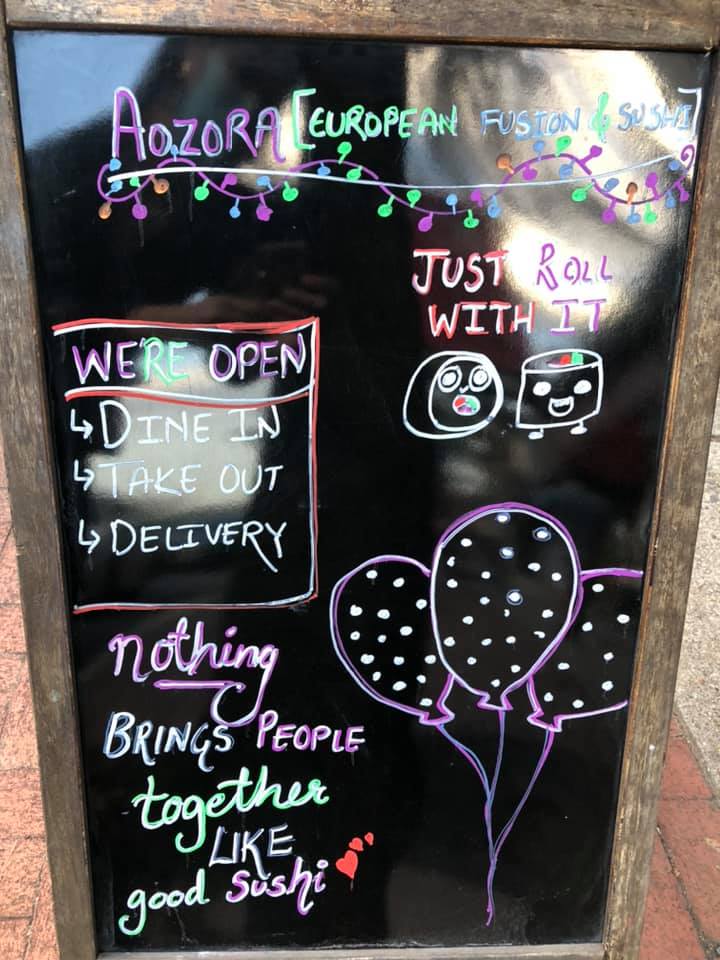 AOZORA [EUROPEAN FUSION & SUSHI]
JUST ROLL
WITH IT
WE'RE OPEN
↳ DINE IN
↳ TAKE OUT
↳ DELIVERY
nothing
BRINGS PEOPLE
together
LIKE
good sushi